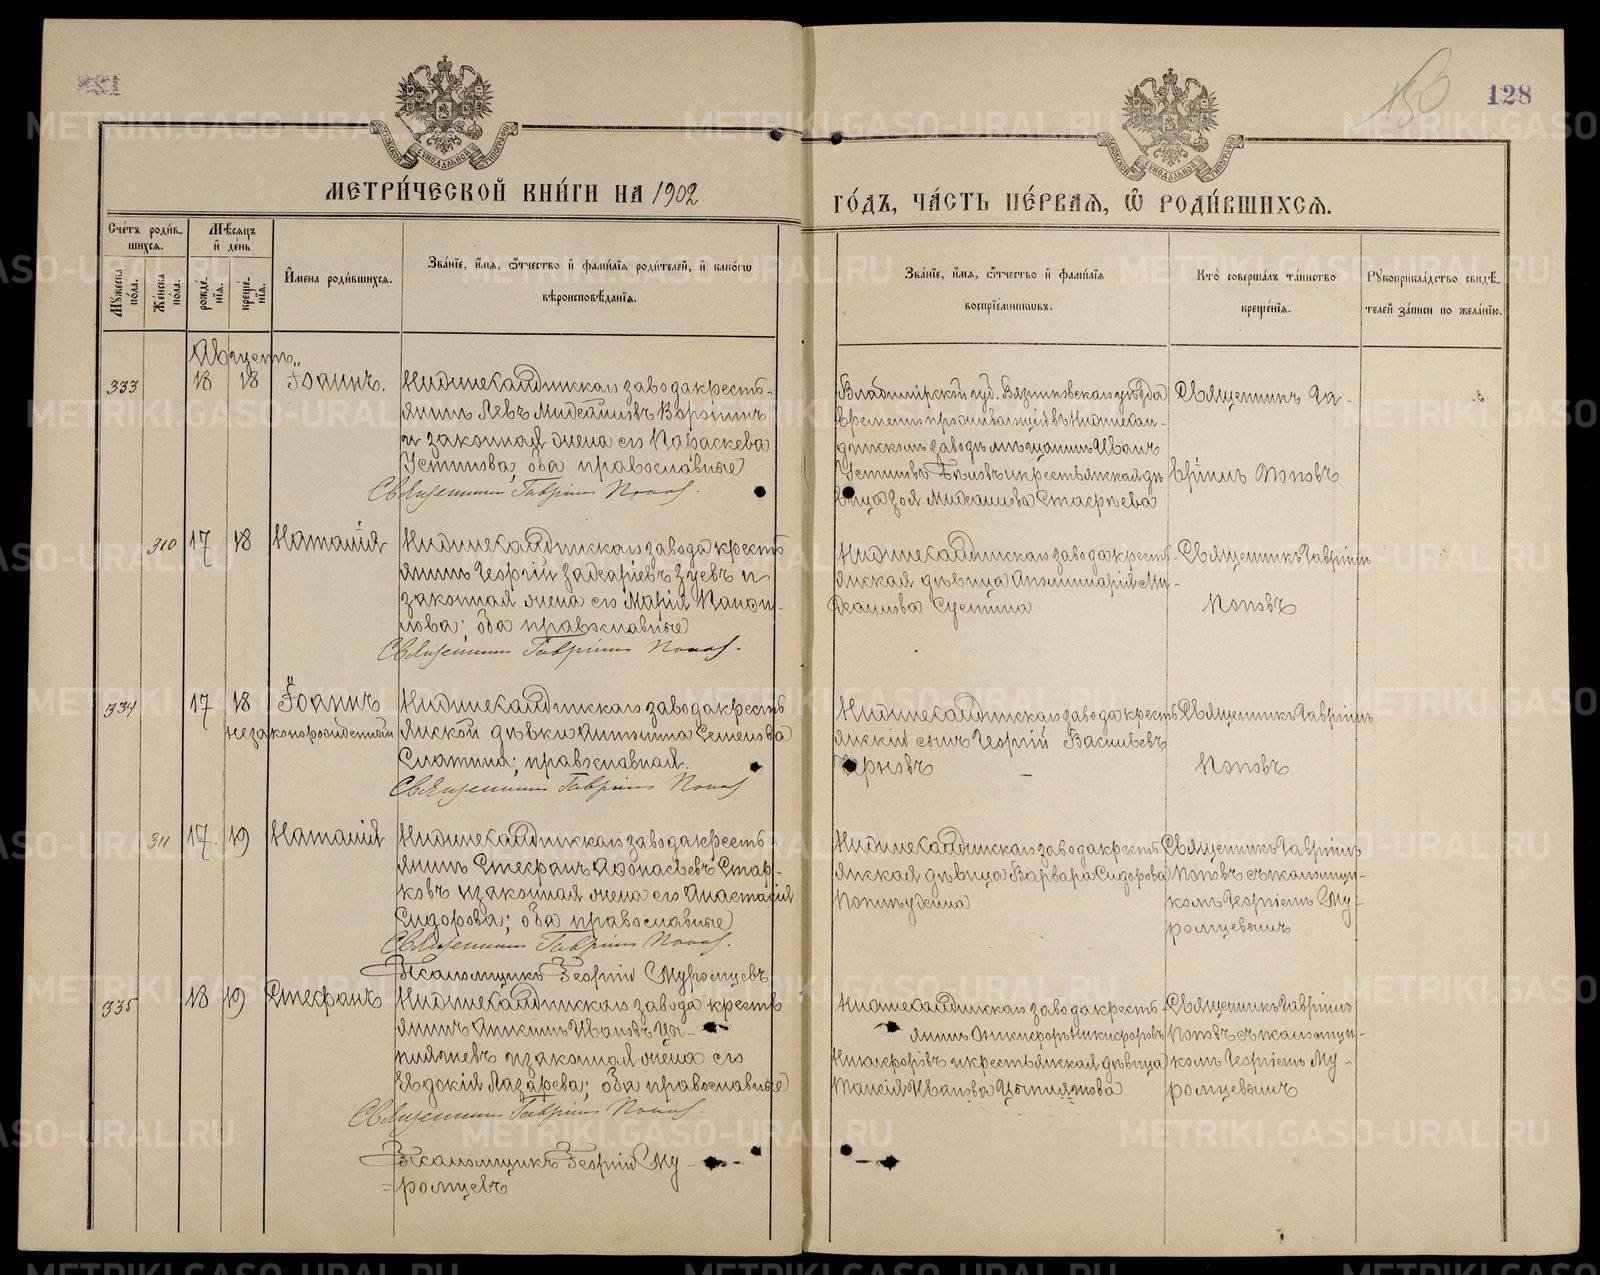 128
128
150
МОСКОВСКОЙ СѴНОДАЛЬНОЙ ТИПОГРАФІИ
МОСКОВСКОЙ СѴНОДАЛЬНОЙ ТИПОГРАФІИ
МЕТРИ́ЧЕСКОЙ КНИ́ГИ НА 1902
ГО́ДЪ, ЧА́СТЬ ПЕ́РВАѦ, Ѡ҆ РОДИ́ВШИХСѦ.
Сче́тъ роди́в-
шихсѧ.
Мѣ́сѧцъ
и҆ де́нь
Мꙋ́жеска по́ла.
Же́нска по́ла.
рожде́-
нїѧ.
креще́-
нїѧ.
И҆мена роди́вшихсѧ.
Зва́нїе, и҆́мѧ, ѻ҆́тчество и҆ фами́лїѧ роди́телей, и҆ како́гѡ
вѣроисповѣ́данїѧ.
Зва́нїе, и҆́мѧ, ѻ҆́тчество и҆ фами́лїѧ
воспрїе́мникѡвъ.
Кто̀ соверша́лъ та́инство
креще́нїѧ.
Рꙋкоприкла́дство свидѣ́-
телей за́писи по жела́нїю.
Августъ
333 18 18 Іоаннъ.
Нижнесалдинскаго завода кресть-
янинъ Левъ Михайловъ Воронинъ
и законная жена его Параскева
Устинова, оба православные
Священникъ Гавріилъ Попов.
Владимірской губ. Вязниковскаго уѣзда
временно проживающій въ Нижнесал-
динскомъ заводѣ мѣщанинъ Иванъ
Устиновъ и крестьянская дѣ-
вица Зоя Михаилова
Священникъ Га-
вріилъ Поповъ
310 17 18 Наталія
Нижнесалдинскаго завода кресть
янинъ Георгій Захаріевъ Зуевъ и
законная жена его Марія Панфи-
лова; оба православные
Священникъ Гавріилъ Попов.
Нижнесалдинскаго завода кресть-
янская дѣвица Аполлинарія Ми-
хаилова
Священникъ Гавріилъ
Поповъ
334 17 18 Іоаннъ
незаконорожденный
Нижнесалдинскаго завода кресть
янской дѣвки Антонина Семенова
православная.
Священникъ Гавріилъ Попов
Нижнесалдинскаго завода кресть
янскій сынъ Георгій Васильевъ
Священникъ Гавріилъ
Поповъ
311 17. 19 Наталія
Нижнесалдинскаго завода кресть-
янинъ Стефанъ Афонасьевъ Стар-
ковъ и законная жена его Анастасія
Сидорова; оба православные
Священникъ Гавріилъ Попов.
Псаломщикъ Георгій Муромцевъ
Нижнесалдинскаго завода кресть
янская дѣвица Варвара Сидорова
Священникъ Гавріилъ
Поповъ съ псаломщи-
комъ Георгіемъ Му-
ромцевымъ
335 18 19 Стефанъ
Нижнесалдинскаго завода кресть
янинъ Иванов
и законная жена его
Евдокія Лазарева; оба православные
Священникъ Гавріилъ Попов.
Псаломщикъ Георгій Му-
=ромцевъ
Нижнесалдинскаго завода кресть-
янинъ Никифоръ
Никифоровъ и крестьянская дѣвица
Таисія Иванова
Священникъ Гавріилъ
Поповъ съ псаломщи-
комъ Георгіемъ Му-
ромцевымъ
METRIKI.GASO-URAL.RU